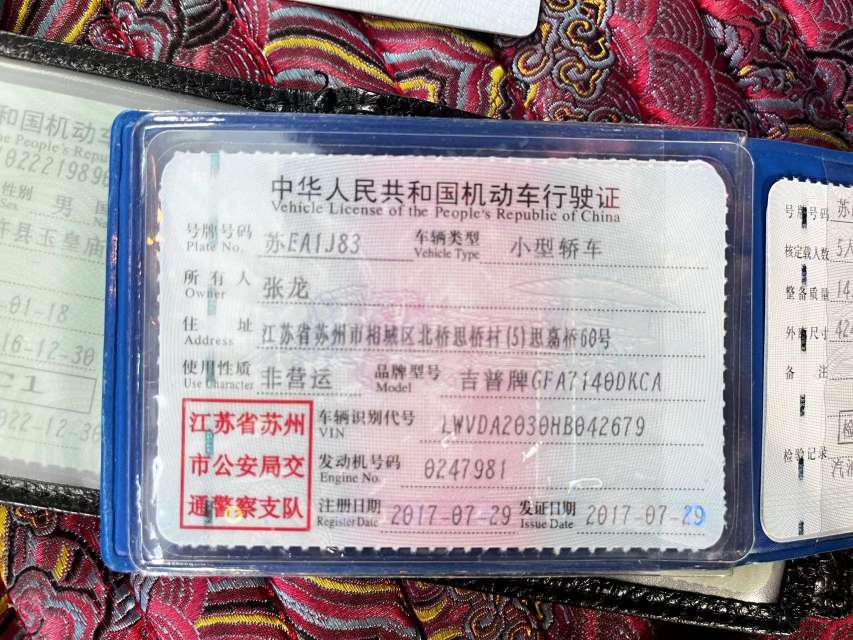 中华人民共和国机动车行驶证
Vehicle License of the People's Republic of China
号牌号码 苏EA1J83 车辆类型 小型轿车
Plate No. Vehicle Type
所有人 张龙
Owner
住址 江苏省苏州市相城区北桥思桥村(5)思嘉桥60号
Address
使用性质 非营运 品牌型号 吉普牌GFA7140DKCA
Use Character Model
江苏省苏州
市公安局交
通警察支队
车辆识别代号 LWVDA2030HB042679
VIN
发动机号码 0247981
Engine No.
注册日期 2017-07-29 发证日期 2017-07-29
Register Date Issue Date
和国机动车
he People's Repu
性别 男 国
Sex
县玉皇庙
-01-18
16-12-30
C1
022-12-30
号牌号码 苏
核定载人数 5人
整备质量 14
外廓尺寸 424
备注
检验记录